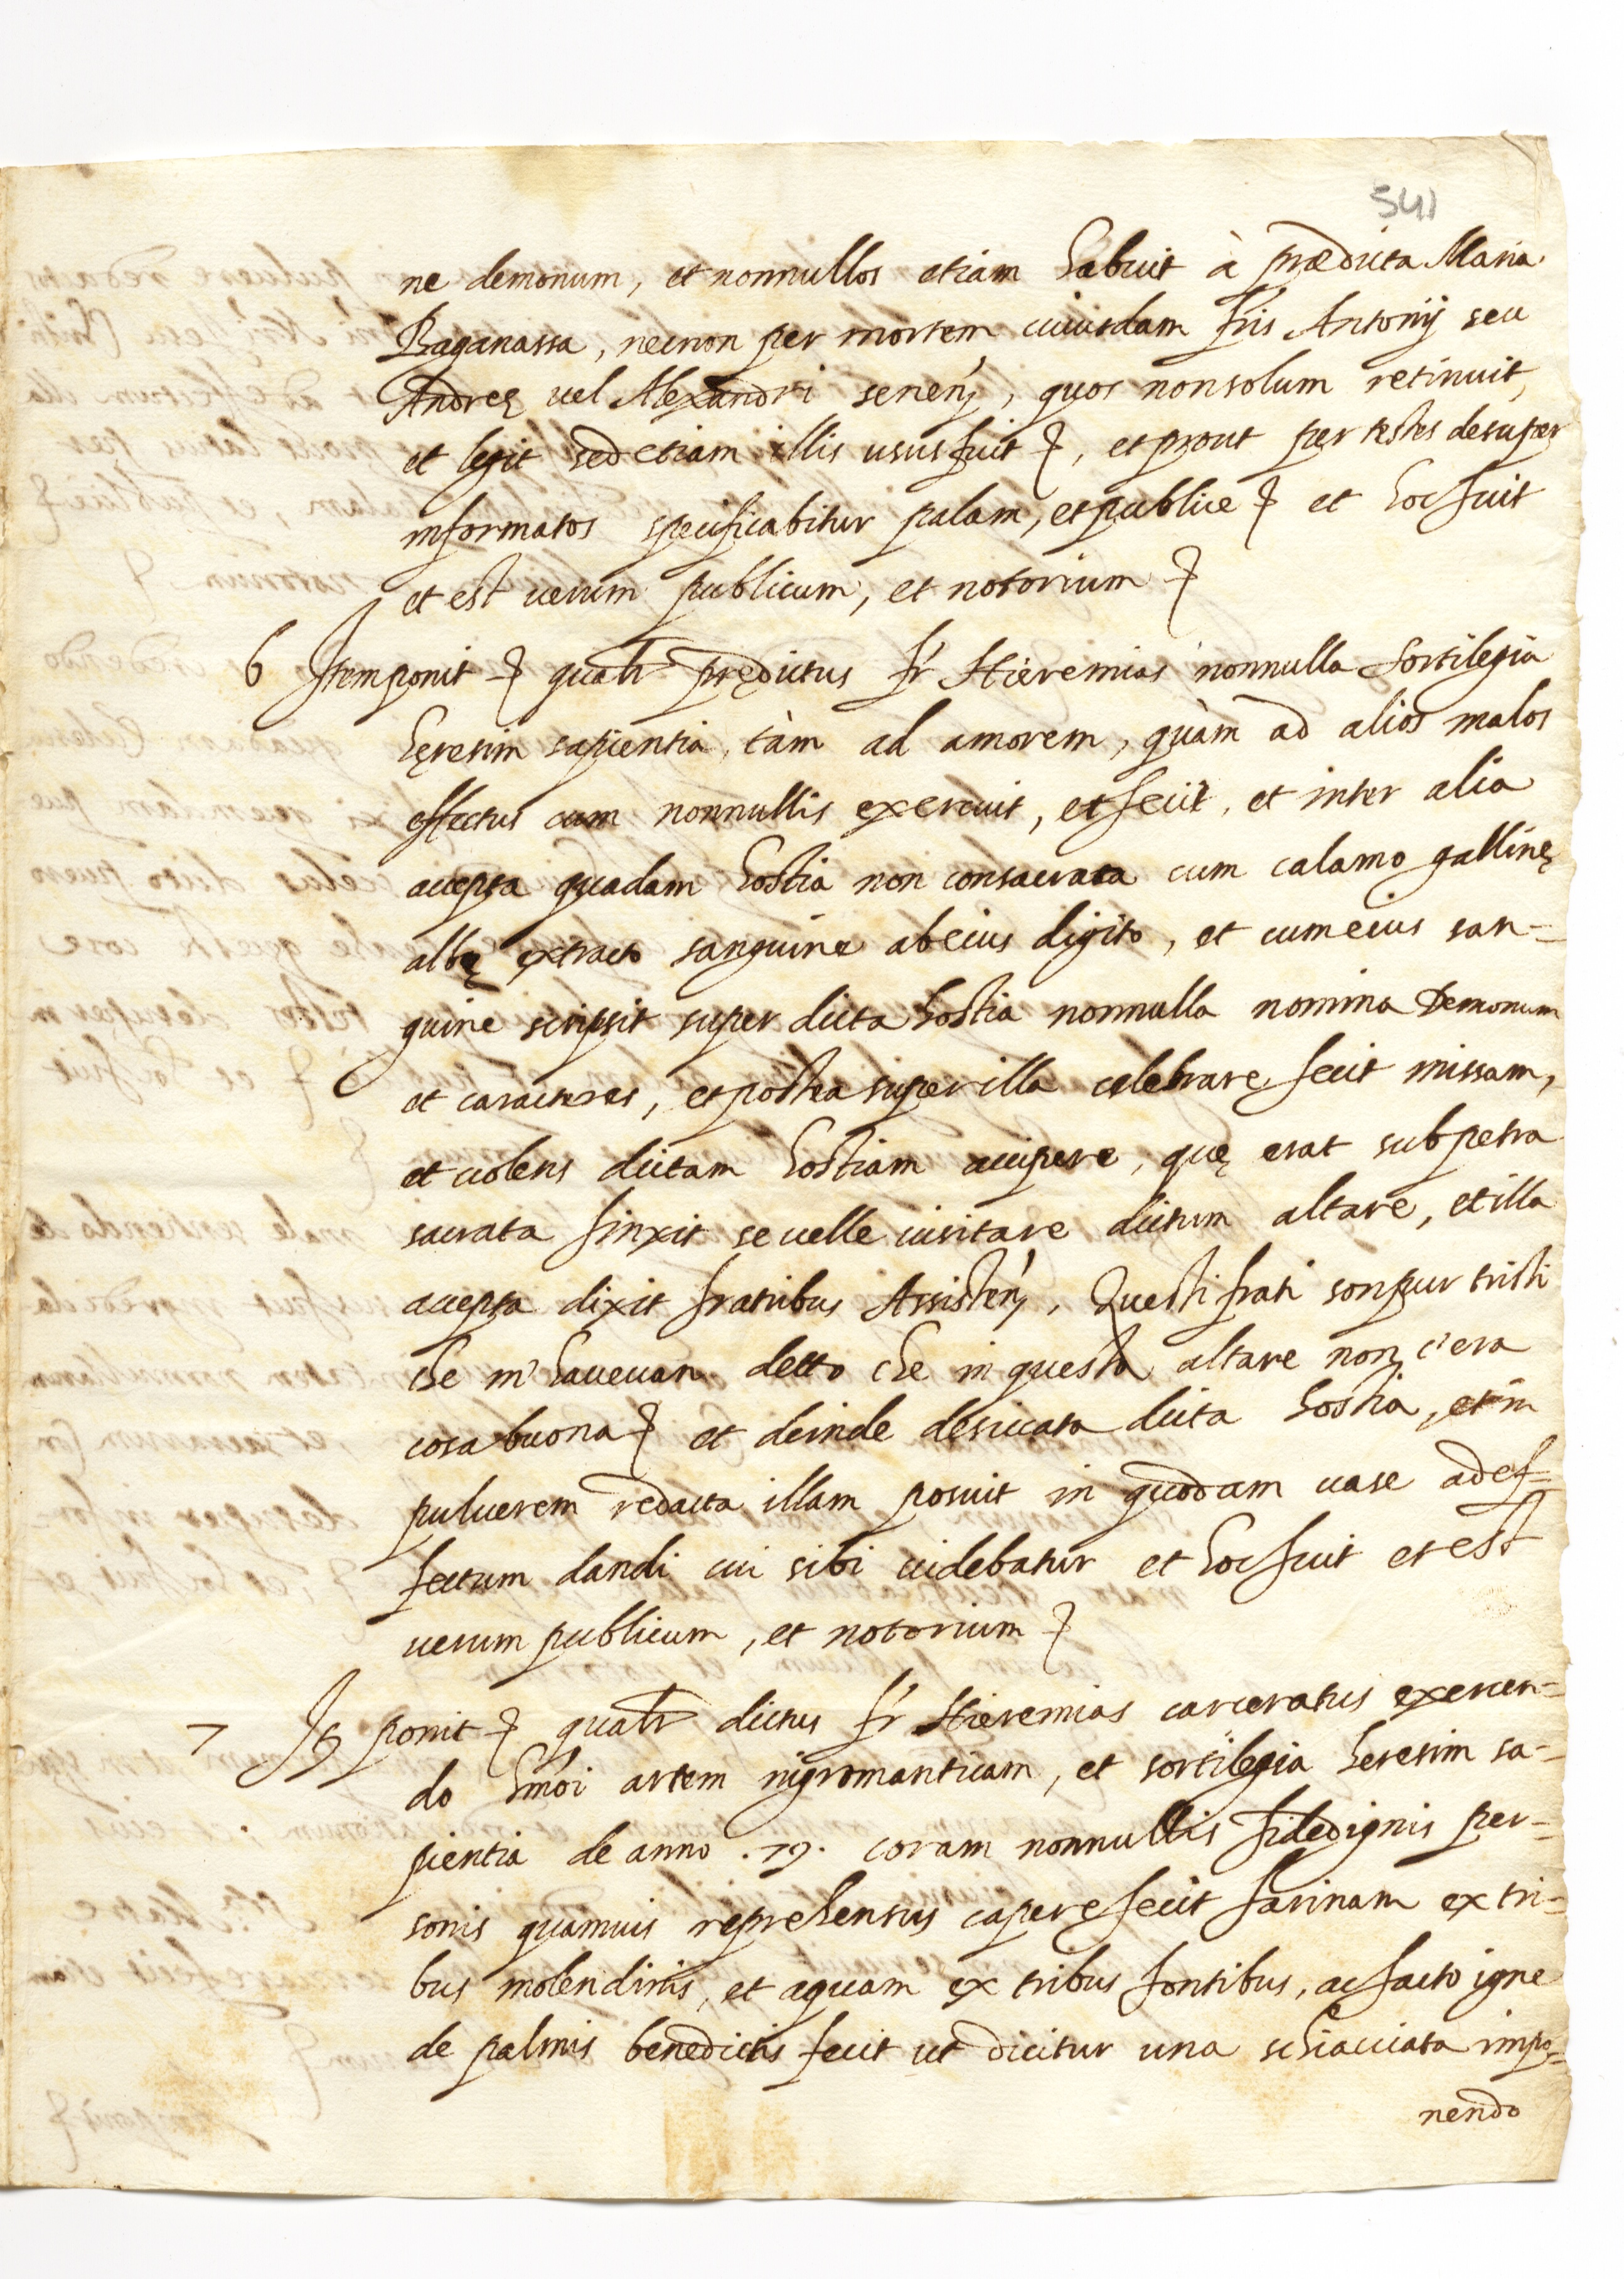 541
ne demonum, et nonnullos etiam habuit à prædicta Maria
Baganassa, necnon per mortem cuiusdam fris Antonij seu
Andreę uel Alexandri senen̄, quos non solum retinuit,
et legit sed etiam illis usus fuit &, et prout per testes desuper
informatos specificabitur palam, et publice & et hoc fuit
et est uerum publicum, et notorium &
6 Item ponit & qualr prędictus fr Hieremias nonnulla sortilegia
hęresim sapientia, tàm ad amorem, quàm ad alios malos
effectus cum nonnullis exercuit, et fecit, et inter alia
accepta quadam hostia non consacrata cum calamo gallinę
albę extracto sanguine ab eius digito, et cum eius san=
guine scripsit super dicta hostia nonnulla nomina Demonum
et caracteres, et postea super illa celebrare fecit missam,
et uolens dictam hostiam accipere, quę erat sub petra
sacrata finxit se uelle uisitare dictum altare, et illa
accepta dixit fratribus Assisten̄, Questi frati son pur tristi
che m'haueuan detto che in questo altare non c'era
cosa buona & et deinde desiccata dicta hostia, et in
puluerem redacta illam posuit in quodam uase ad ef=
fectum dandi cui sibi uidebatur et hoc fuit et est
uerum publicum, et notorium &
7 It ponit & qualr dictus fr Hieremias carceratus exercen=
do hmōi artem nigromanticam, et sortilegia heresim sa=
pientia de anno .79. coram nonnullis fidedignis per=
sonis quamuis reprehensus capere fecit farinam ex tri=
bus molendinis, et aquam ex tribus fontibus, ac facto igne
de palmis benedictis fecit ut dicitur una schiacciata impo=
nendo